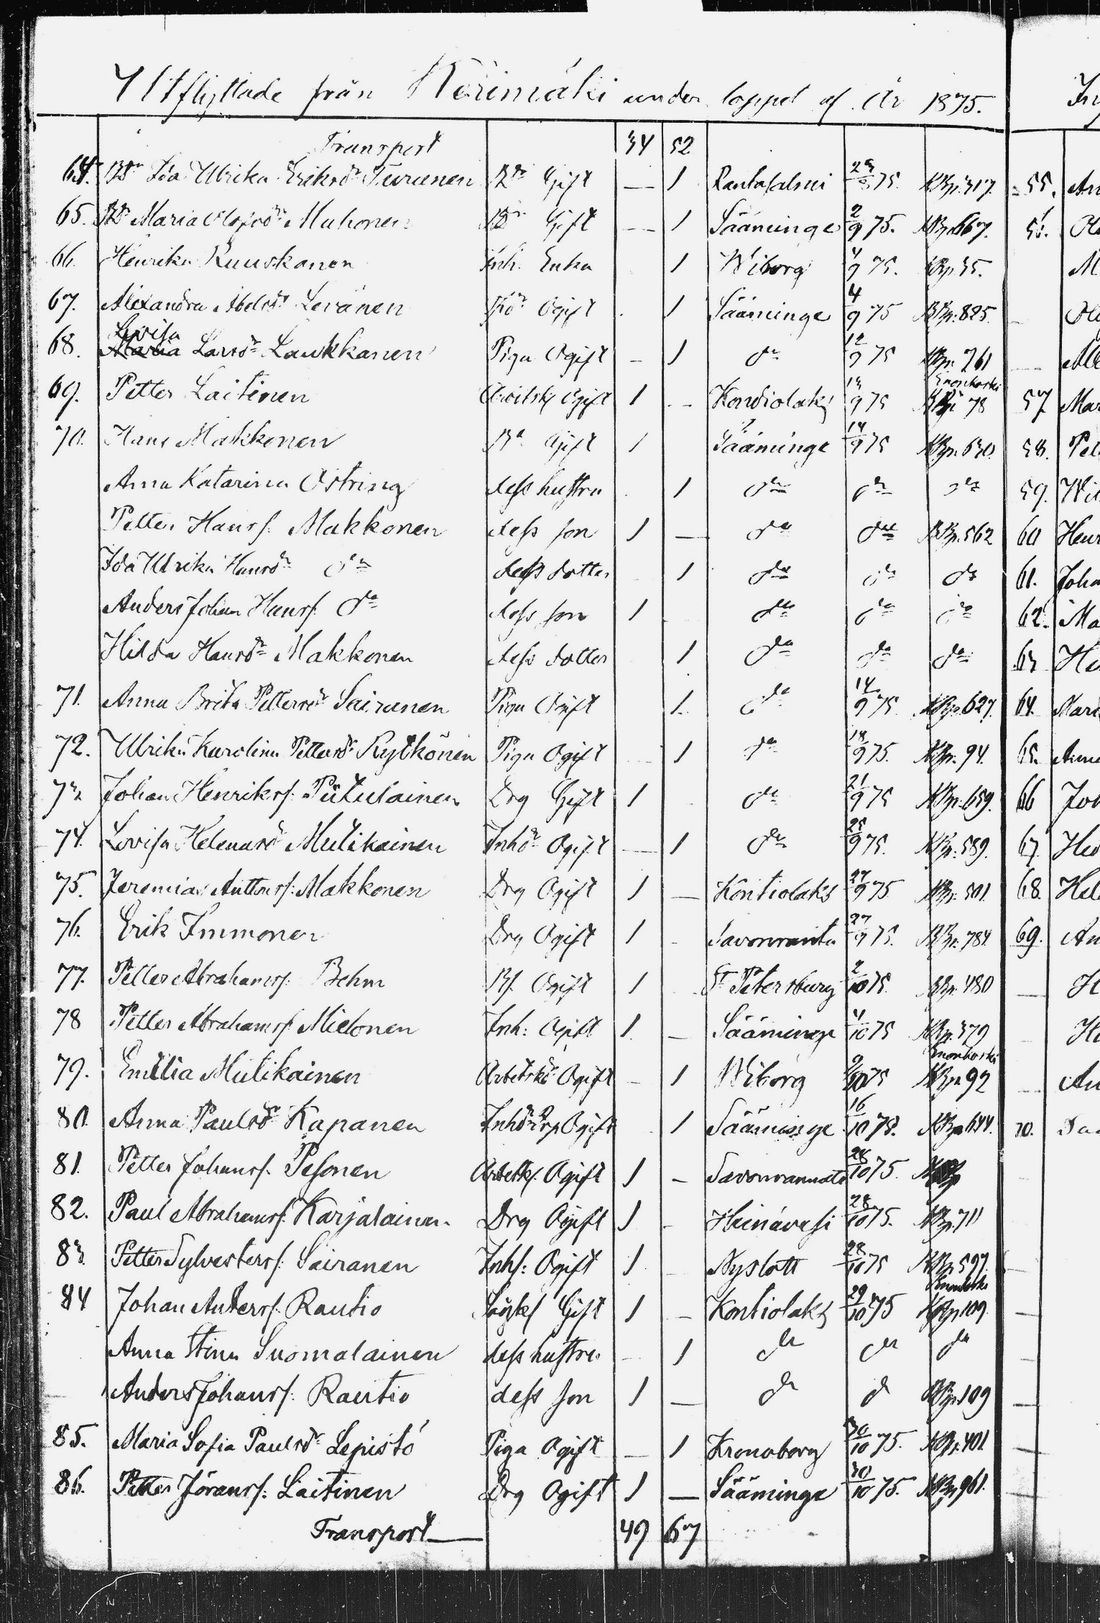 Utflyttade från Kerimäki under loppet af År 1875.
Transport 34 52
64. Bd. Ida Ulrika Eriksdr Turunen Bdr Gift — 1 Rantasalmi 75. KBp. 317.
65. Maria Olofsdr Muhonen Gift — 1 Sääminge 2/9 75. KBp. 667.
66. Henrika Ruuskanen Inh. Enka 1 Wiborg 4/9 75. KBp. 35.
67. Alexandra Abelsdr Levänen Ogift 1 Sääminge 4/9 75 KBp. 825.
68. Lovisa Larsdr Laukkanen Piga Ogift — 1 do 12/9 75 KBp. 261
69. Petter Laitinen Arbetsk Ogift 1 — Kondiolaks 13/9 75 Enonkoski KBp. 78
70. Hans Makkonen Bd Gift 1 Sääminge 14/9 75 KBp. 630.
Anna Katarina Östring dess hustru 1 do do do
Petter Hansf. Makkonen dess son 1 — do do KBp. 562
Ida Ulrika Hansdr do dess dotter 1 do do do
Anders Johan Hansf. do dess son 1 do do do
Hilda Hansdr Makkonen dess dotter 1 do do do
71. Anna Brita Pettersdr Sairanen Piga Ogift 1 do 14/9 75. KBp. 627.
72. Ulrika Karolina Pettersdr Rytkönen Piga Ogift — 1 do 18/9 75. KBp. 94.
73. Johan Henriksf. Putulainen Drg Gift 1 do 21/9 75 KBp. 659.
74. Lovisa Helena Mulikainen Inhdr Ogift — 1 do 25/9 75. KBp. 589.
75. Jeremias Antonsf. Makkonen Drg Ogift 1 — Kontiolaks 27/9 75 KBp. 501.
76. Erik Immonen Drg Ogift 1 — Savonranta 27/9 75. KBp. 784
77. Petter Abrahamsf. Behm Bf. Ogift 1 St Petersburg 2/10 75. KBp. 480
78 Petter Abrahamsf. Mielonen Inh: Ogift 1. — Sääminge 4/10 75 KBp. 379
79. Emilia Mulikainen Arbetskdr Ogift — 1 Wiborg 9/10 75 Enonkoski KBp. 92
80. Anna Paulsdr Kapanen Inhdr Ogift 1 Sääminge 16/10 75. KBp. 644.
81. Petter Johansf. Pesonen Arbetskf. Ogift 1 — Savonrannalle 28/10 75.
82. Paul Abrahamsf. Karjalainen Drg Ogift 1 — Heinävesi 28/10 75. KBp. 711
83. Petter Sylvestersf. Sairanen Inhf: Ogift 1 Nyslott 28/10 75 KBp. 597.
84 Johan Andersf. Rautio Gift 1 — Kontiolaks 29/10 75 Enonkoski KBp. 109
Anna Stina Suomalainen dess hustru — 1 do do do
Anders Johansf. Rautio dess son 1 — do do KBp. 109
85. Maria Sofia Paulsdr Lepistö Piga Ogift — 1 Kronoborg 30/10 75. KBp. 401
86. Petter Jöransf. Laitinen Drg Ogift 1 — Sääminge 30/10 75. KBp. 961.
Transport — 49 67
55.
56.
57. Mar
58.
59.
60 Henr
61. Joha
62. Ma
63
64. Mari
65. Anna
66 Joh
67.
68. Hel
69. An
70.